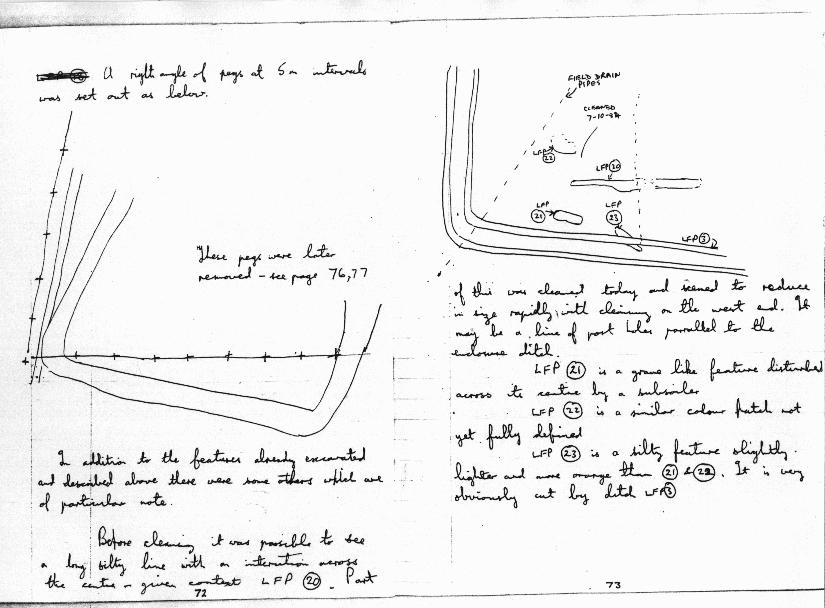 A right angle of pegs at 5m intervals
was set out as below.
These pegs were later
removed - see page 76,77
In addition to the features already excavated
and described above there were some others which are
of particular note.
Before cleaning it was possible to see
a long silty line with an interuction across
the centre - given context LFP 20. Part
72
FIELD DRAIN
PIPES
CLEANED
7-10-84
LFP
22
LFP 20
LFP
21
LFP
23
LFP 3
of this was cleaned today and seemed to reduce
in size rapidly with cleaning on the west end. It
may be a line of post holes parrallel to the
enclosure ditch.
LFP 21 is a grave like feature disturbed
across its centre by a subsoiler
LFP 22 is a similar colour patch not
yet fully defined
LFP 23 is a silty feature slightly
lighter and more orange than 21 & 22. It is very
obviously cut by ditch LFP 3
73